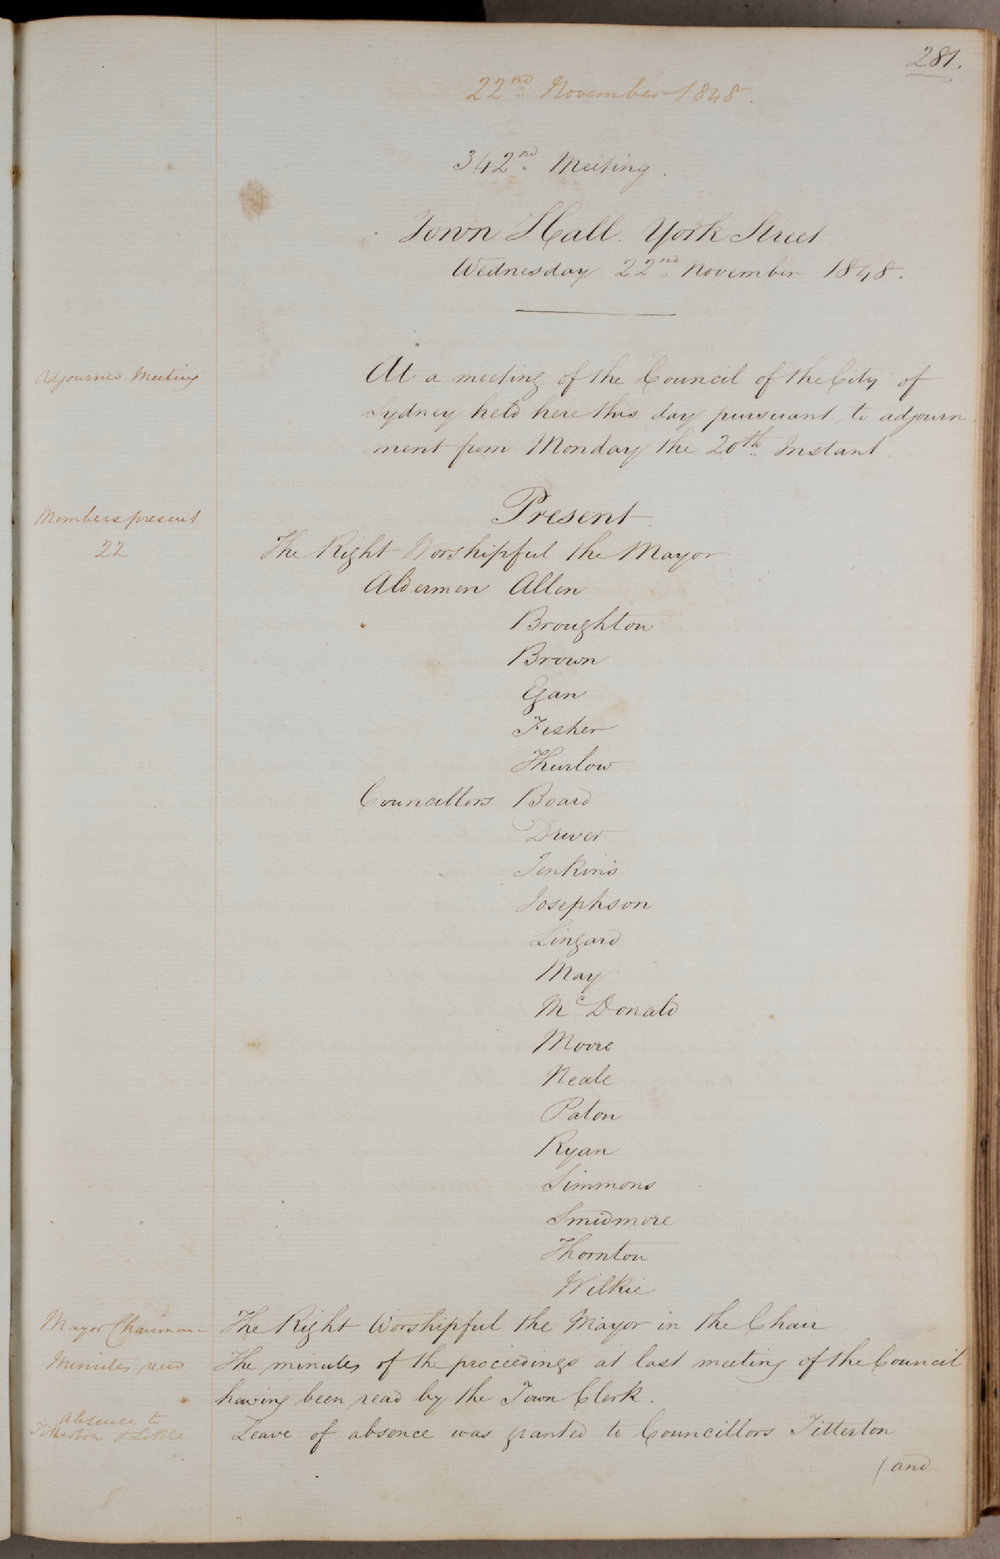 281.
22nd November 1848.
342nd Meeting.
Town Hall. York Street
Wednesday 22nd November 1848.
Adjourned Meeting
At a meeting of the Council of the City of
Sydney held here this day pursuant to adjourn
ment from Monday the 20th Instant
Members present
22
Present
The Right Worshipful the Mayor
Aldermen Allen
Broughton
Brown
Egan
Fisher
Thurlow
Councillors Board
Driver
Jenkins
Josephson
Lingard
May
McDonald
Moore
Neale
Paton
Ryan
Simmons
Smidmore
Thornton
Wilkie
Mayor Chairman
The Right Worshipful the Mayor in the Chair
Minutes read
The minutes of the proceedings at last meeting of the Council
having been read by the Town Clerk.
Absence to
Titterton & Little
Leave of absence was granted to Councillors Titterton
(and